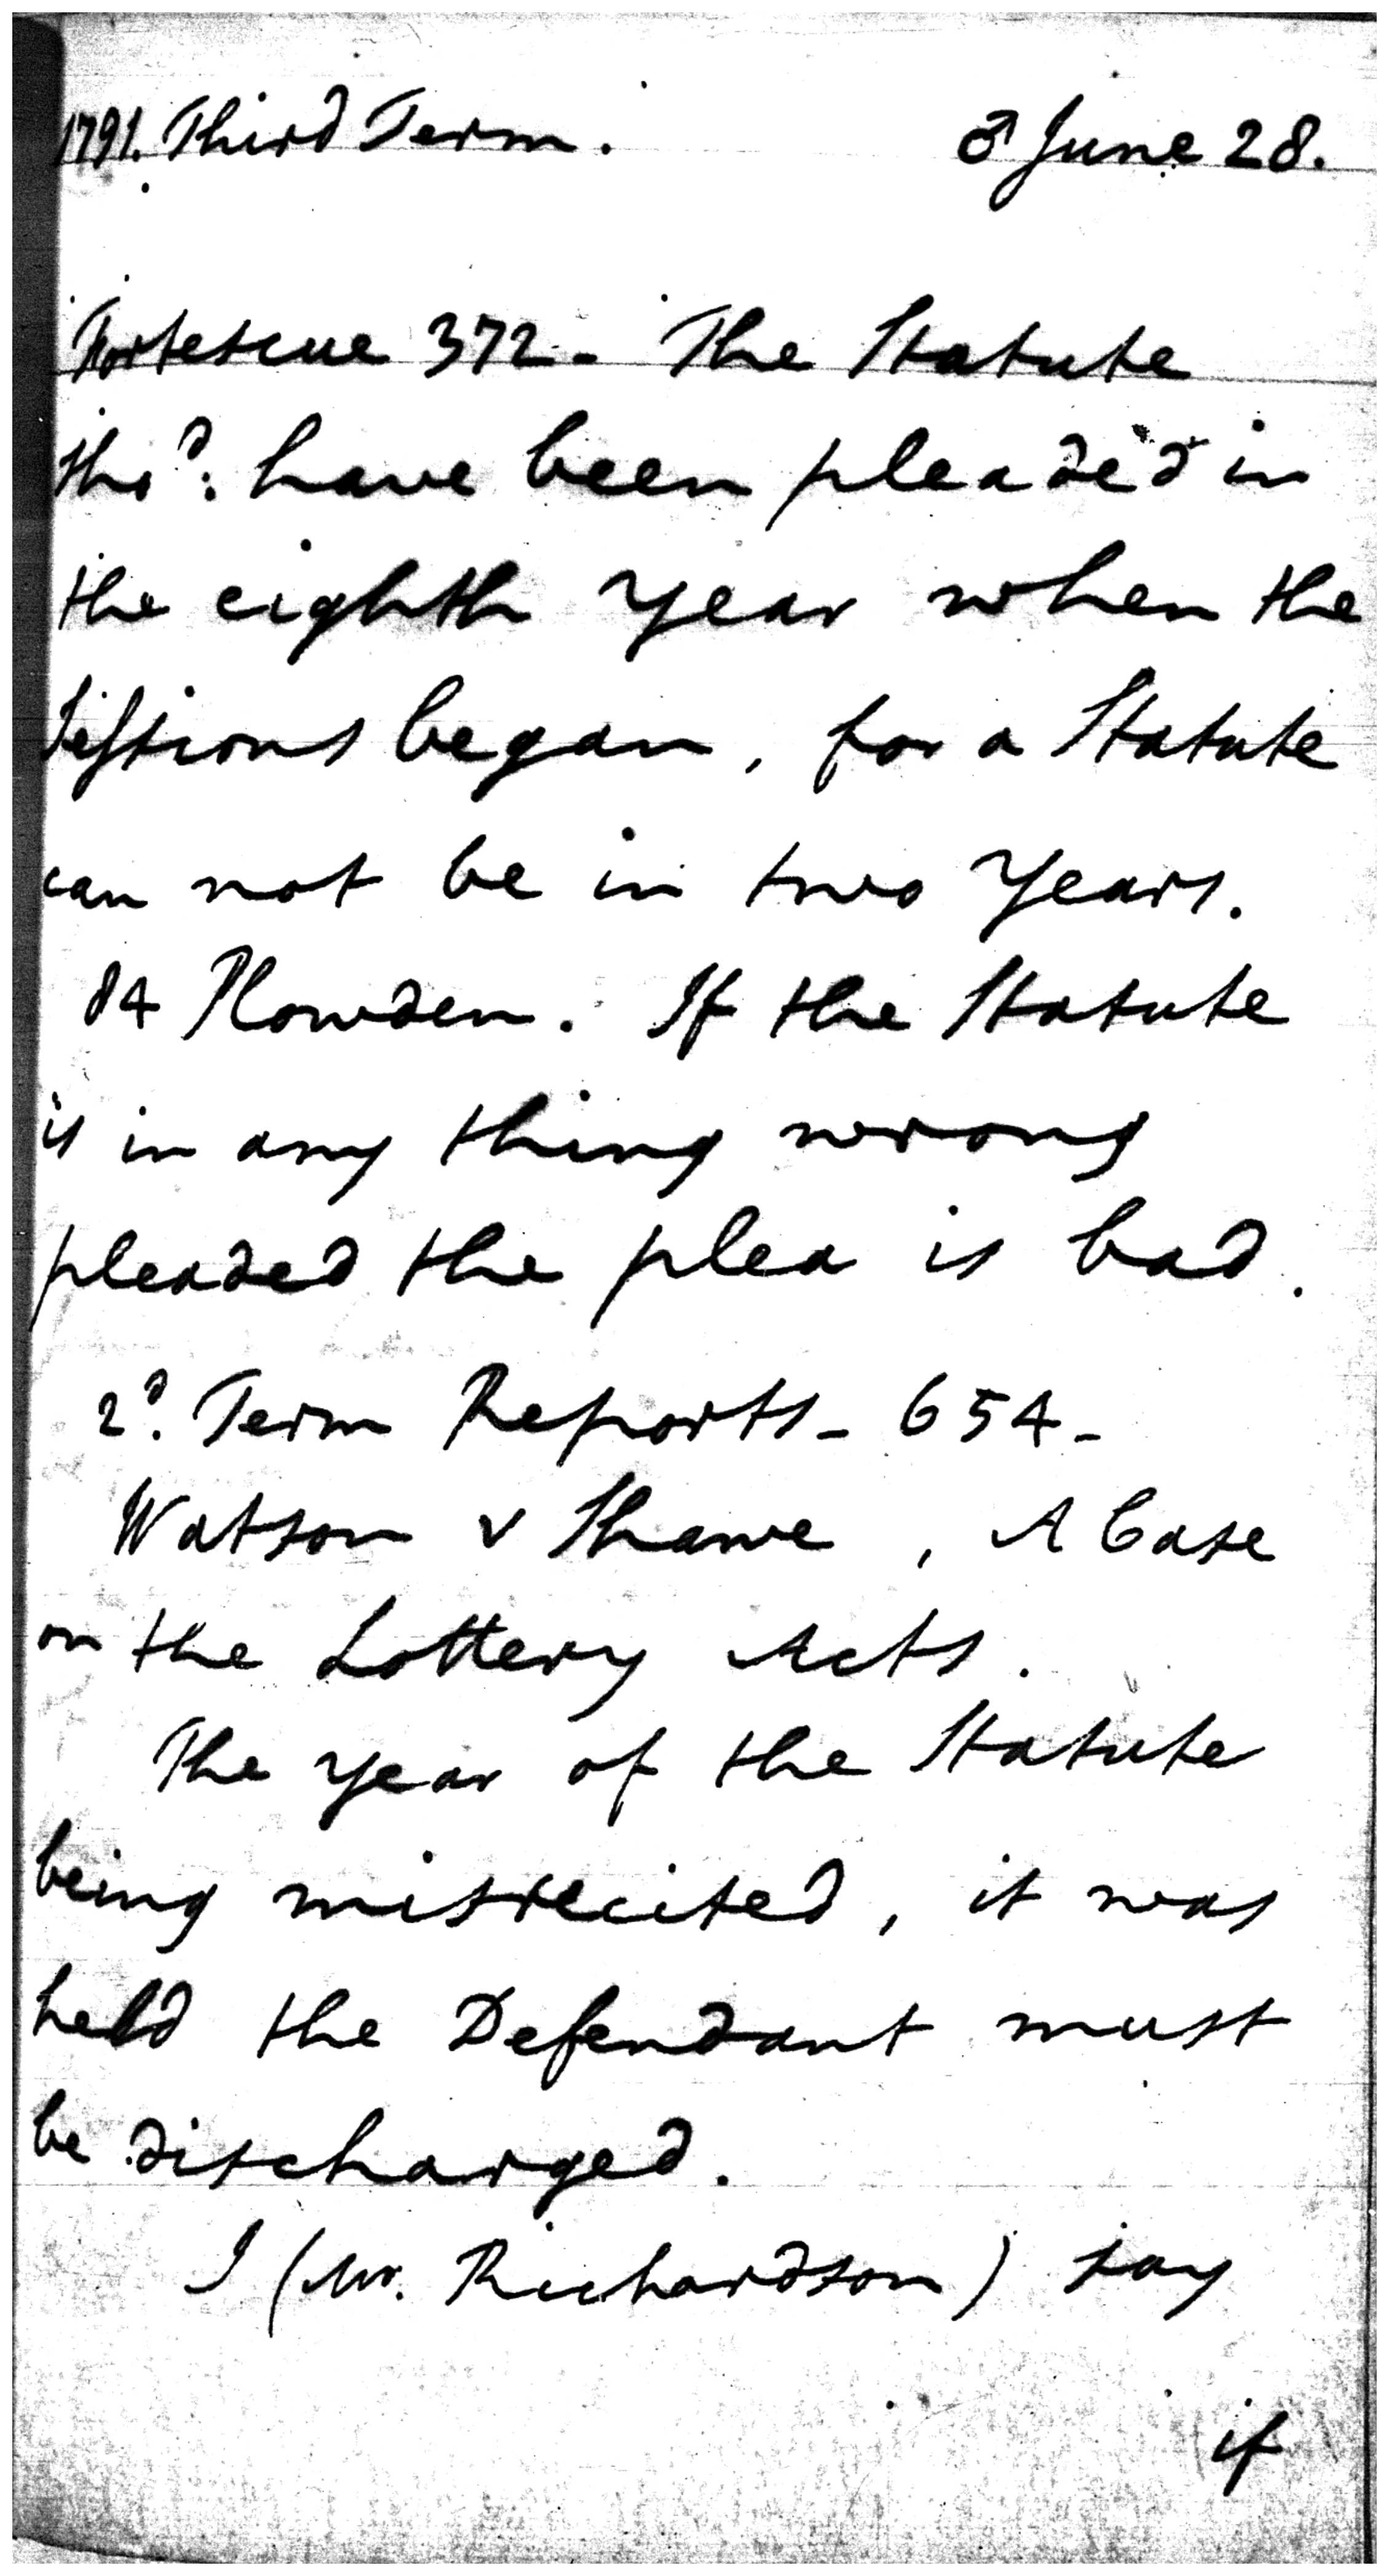 1791. Third Term. ♂ June 28.
Fortescue 372 - The Statute
sho.^d: have been pleaded in
the eighth Year when the
Sessions began, for a Statute
can not be in two Years.
84 Plowden. If the Statute
is in any thing wrong
pleaded the plea is bad.
2^d. Term Reports - 654 -
Watson v Shawe, A Case
on the Lottery Acts.
The Year of the Statute
being misrecited, it was
held the Defendant must
be discharged.
I (Mr. Richardson) say
if